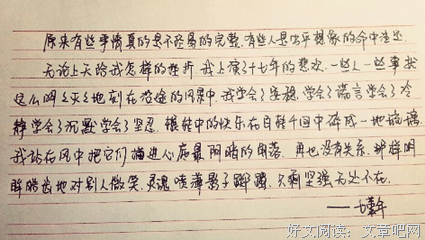 原来有些事情真的是不轻易的完整,有些人是
无论上天给我怎样的挫折 我上演了十七年的悲欢.一些人一些事就
这么明明灭灭地刻在沿途的风景中.我学会了坚强,学会了谎言学会了冷
静学会了沉默学会了坚忍.辗转中的快乐在百转千回中碎成一地琉璃
我站在风中把它们扫进心底最阴暗的角落.再也没有关系.那样明
眸皓齿地对别人微笑.灵魂喷薄影子踯躅.只剩坚强无处不在.
——七堇年
好文阅读:文章吧网